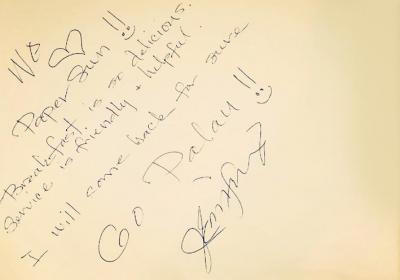 We ♡
Paper Sun!!
Breakfast is so delicious.
Service is friendly + helpful
I will come back for sure
Go Palau!!